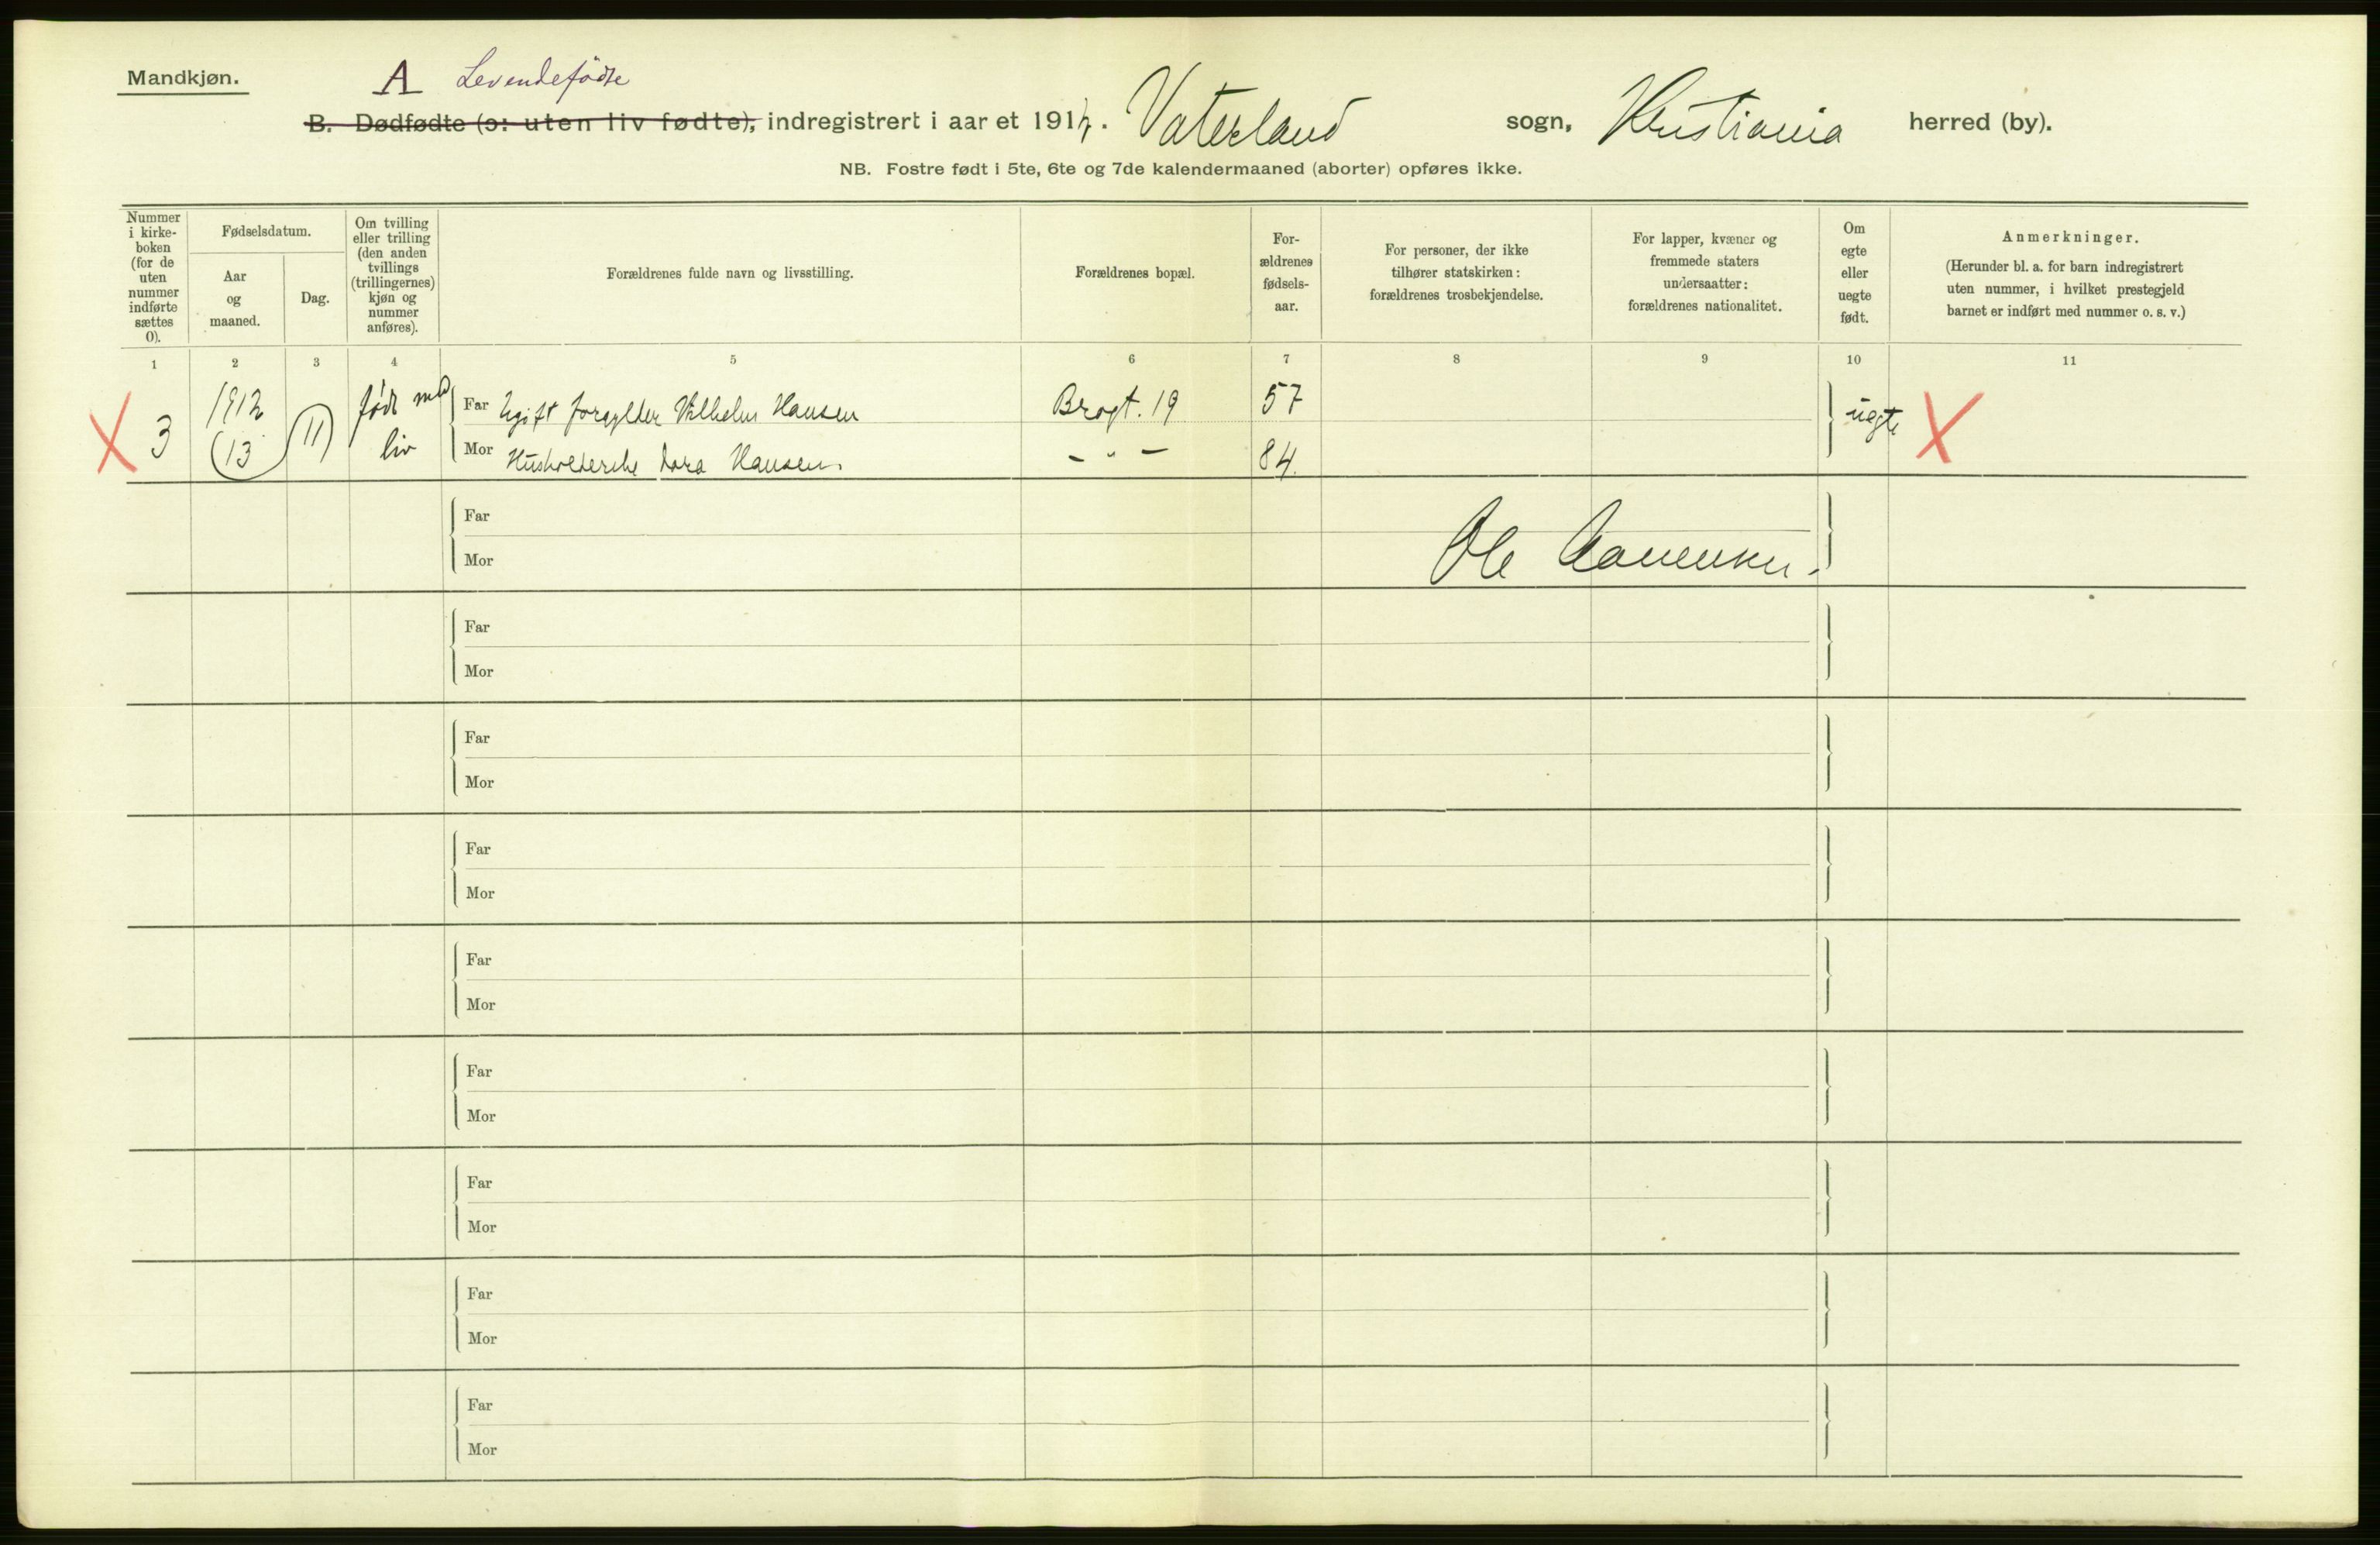 Mandkjøn.
A Levendefødte
B. Dødfødte (ɔ: uten liv fødte), indregistrert i aar et 191 . Vaterland sogn, Kristiania herred (by).
NB. Fostre født i 5te, 6te og 7de kalendermaaned (aborter) opføres ikke.
Nummer i kirke-boken (for de uten nummer indførte sættes 0).
Fødselsdatum.
Aar og maaned.
Dag.
Om tvilling eller trilling (den anden tvillings (trillingernes) kjøn og nummer anføres).
Forældrenes fulde navn og livsstilling.
Forældrenes bopæl.
For-ældrenes fødsels-aar.
For personer, der ikke tilhører statskirken: forældrenes trosbekjendelse.
For lapper, kvæner og fremmede staters undersaatter: forældrenes nationalitet.
Om egte eller uegte født.
Anmerkninger.
(Herunder bl. a. for barn indregistrert uten nummer, i hvilket prestegjeld barnet er indført med nummer o. s. v.)
1 2 3 4 5 6 7 8 9 10 11
X 3 1912 (13 11) født med liv
Far Ugift forgylder Vilhelm Hansen Brogt. 19 57 uegte X
Mor Husholderske Dora Hansen. - " - 84.
Far
Mor
Ole
Far
Mor
Far
Mor
Far
Mor
Far
Mor
Far
Mor
Far
Mor
Far
Mor
Far
Mor